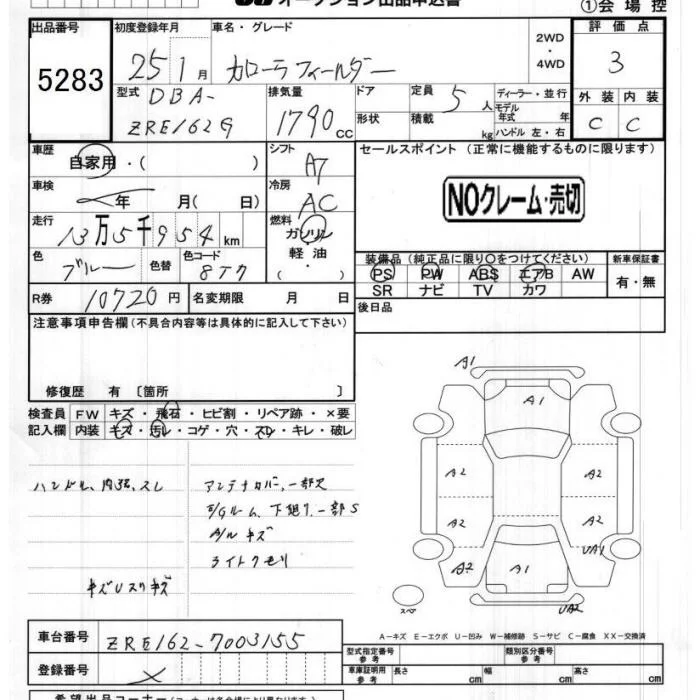 オークション出品申込書
①会場控
出品番号 5283
初度登録年月 25 1月
車名・グレード カローラフィールダー
2WD・4WD
評価点 3
型式 DBA-ZRE162G
排気量 1790cc
ドア 形状
定員 5人
積載 kg
ディーラー・並行
モデル年式 年式
ハンドル 左・右
外装 C 内装 C
車歴 自家用・( )
シフト A7
セールスポイント (正常に機能するものに限ります)
NOクレーム・売切
車検 年 月( 日)
冷房 AC
走行 13万5千954km
燃料 ガソリン 軽油・( )
色 ブルー 色替 色コード 8T7
装備品(純正品に限り○をつけてください)
新車保証書 有・無
PS PW ABS エアB AW
SR ナビ TV カワ
R券 10720円 名変期限 月 日
後日品
注意事項申告欄(不具合内容等は具体的に記入して下さい)
修復歴 有〔箇所 〕
検査員記入欄
FW キズ・飛石・ヒビ割・リペア跡・×要
内装 キズ・汚レ・コゲ・穴・スレ・キレ・破レ
ハンドル、内張、スレ
キズUスリキズ
アンテナカバー、一部欠
E/Gルーム、下廻り、一部S
A/Wキズ
ライトクモリ
A1
A1
A2 A2
A2 A2
UA1
A2 A1
スペア
UA2
A-キズ E-エクボ U-凹み W-補修跡 S-サビ C-腐食 XX-交換済
車台番号 ZRE162-7003155
登録番号 ×
型式指定番号 参考
類別区分番号 参考
車庫証明用 参考 長さ cm 幅 cm 高さ cm
希望出品コーナー